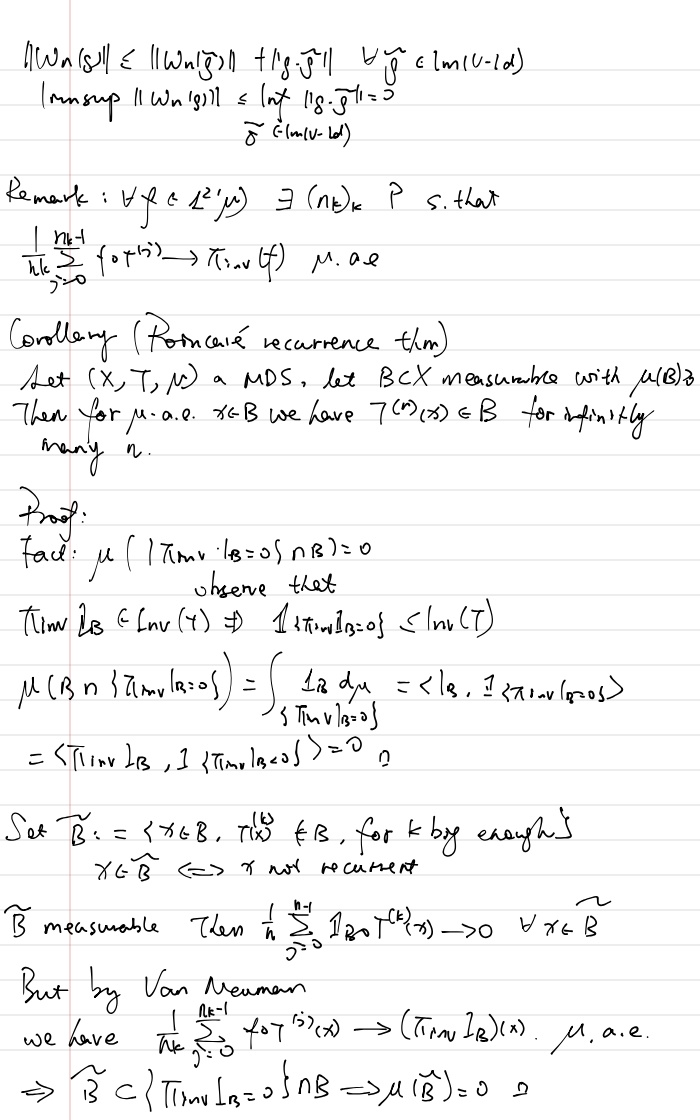 ||Wn(g)|| ≤ ||Wn(g̃)|| + ||g-g̃|| ∀ g̃ ∈ Im(U-Id)
limsup ||Wn(g)|| ≤ Inf ||g-g̃|| = 0
g̃ ∈ Im(U-Id)
Remark: ∀ f ∈ L²(μ) ∃ (nk)k ↑ s.that
1/nk Σ_{j=0}^{nk-1} f∘T^{(j)} → πinv(f) μ.a.e
Corollary (Poincaré recurrence thm)
Let (X, T, μ) a MDS, let B⊂X measurable with μ(B)>
Then for μ.a.e. x∈B we have T^{(n)}(x) ∈ B for infinitly
many n.
Proof:
Fact: μ({πinv 1B=0} ∩ B) = 0
observe that
πinv 1B ∈ Inv(T) ⇒ 1{πinv1B=0} ∈ Inv(T)
μ(B ∩ {πinv 1B=0}) = ∫_{{πinv 1B=0}} 1B dμ = <1B, 1{πinv 1B=0}>
= <πinv 1B, 1{πinv 1B=0}> = 0 □
Set B̃ := {x∈B, T^{(k)}(x) ∉ B, for k big enough}
x∈B̃ ⇔ x not recurrent
B̃ measurable Then 1/n Σ_{j=0}^{n-1} 1B∘T^{(k)}(x) → 0 ∀ x∈B̃
But by Van Neuman
we have 1/nk Σ_{j=0}^{nk-1} f∘T^{(j)}(x) → (πinv 1B)(x). μ.a.e.
⇒ B̃ ⊂ {πinv 1B=0} ∩ B ⇒ μ(B̃)=0 □